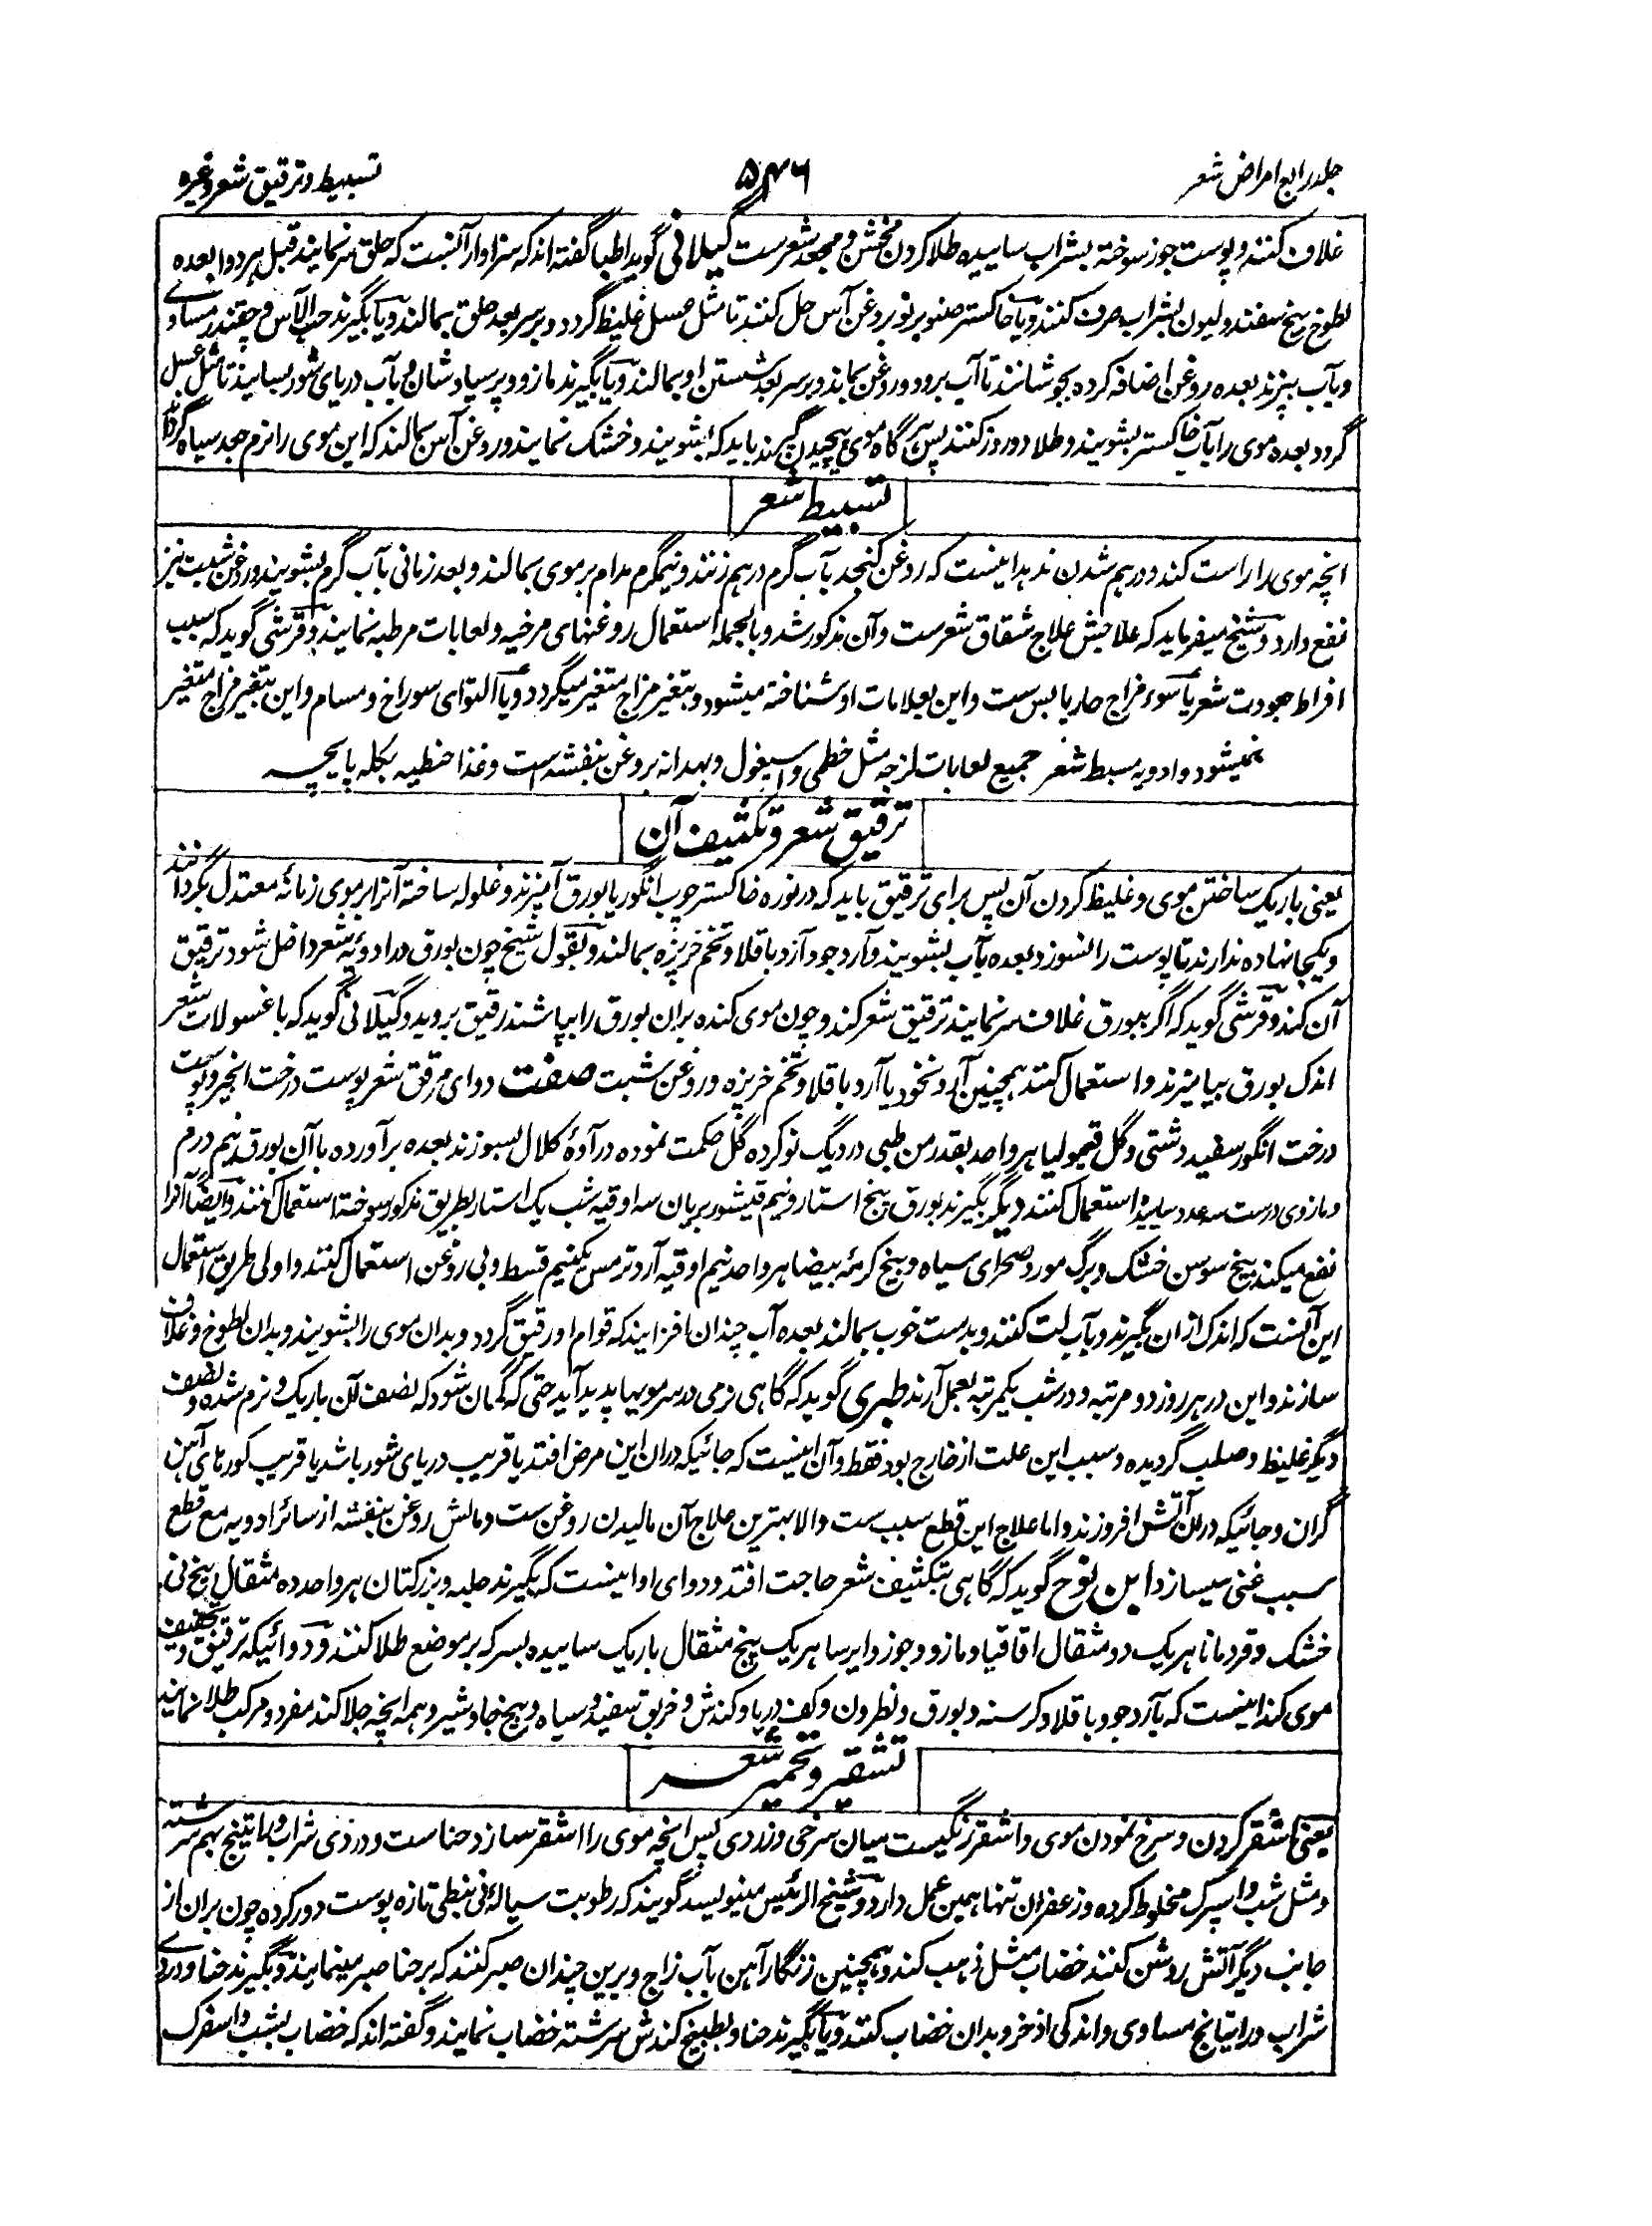 جلد رابع امراض شعر
۵۴۶
تسبیط و ترقیق شعر وغیره
غلاف کنند و پوست جوز سوخته بشراب ساییده طلا کردن مخشن و مجعد شعرست گیلانی گوید اطبا گفته اند که سزاوار آنست که حلق سر نمایند قبل هر دوا بعده
لطوخ بیخ سفندولیون بشراب صرف کنند و یا خاکستر صنوبر نو بروغن آس حل کنند تا مثل عسل غلیظ گردد و بر سر بعد حلق بمالند و یا بگیرند حب الآس و چقندر مساوے
و بآب بپزند بعده روغن اضافه کرده بجوشانند تا آب برود و روغن بماند و بر سر بعد شستن او بمالند و یا بگیرند مازو و پرسیاوشان و بآب دریای شور بسایند تا مثل عسل
گردد بعده موی را بآب خاکستر بشویند و طلا دو روز کنند پس هر گاه موی پیچیدن گیرند باید که بشویند و خشک نمایند و روغن آس بمالند که این موی را نرم جعد سیاه گرداند
تسبیط شعر
انچه موی را راست کند و درهم شدن ندهد اینست که روغن کنجد بآب گرم درهم زنند و نیمگرم مدام بر موی بمالند و بعد زمانی بآب گرم بشویند و روغن شبت نیز
نفع دارد و شیخ میفرماید که علاجش علاج شقاق شعرست و آن مذکور شد و بالجمله استعمال روغنهای مرخیه و لعابات مرطبه نمایند و قرشی گوید که سبب
افراط جعودت شعر یا سوء مزاج حار یابس ست و این بعلامات او شناخته میشود و بتغیر مزاج متغیر میگردد و یا التوای سوراخ و مسام و این بتغیر مزاج متغیر
نمیشود و ادویه مسبط شعر جمیع لعابات لزجه مثل خطمی و اسپغول و بهدانه بروغن بنفشه است و غذا حنطیه بکله پایچه
ترقیق شعر و تکثیف آن
یعنی باریک ساختن موی و غلیظ کردن آن پس برای ترقیق باید که در نوره خاکستر چوب انگور یا بورق آمیزند و غلوله ساخته آنرا بر موی زمانهٔ معتدل بگردانند
و یکجا نهاده ندارند تا پوست را نسوزد بعده بآب بشویند و آرد جو و آرد باقلا و تخم خرپزه بمالند و بقول شیخ چون بورق در ادویهٔ شعر داخل شود ترقیق
آن کند و قرشی گوید که اگر ببورق غلاف سر نمایند ترقیق شعر کند و چون موی کنده بران بورق را بپاشند رقیق بروید و گیلانی گوید که با غسولات شعر
اندک بورق بیامیزند و استعمال کنند همچنین آرد نخود یا آرد باقلا و تخم خرپزه و روغن شبت صفت دوای مرقق شعر پوست درخت انجیر و پوست
درخت انگور سفید دشتی و گل قیمولیا هر واحد بقدر من طبی در دیگ نو کرده گل حکمت نموده در آوهٔ کلال بسوزند بعده برآورده با آن بورق نیم درم
و مازوی درست سه عدد ساییده استعمال کنند دیگر بگیرند بورق پنج استار و نیم قیشور بریان سه اوقیه شب یک استار بطریق مذکور سوخته استعمال کنند و ایضاً آنرا
نفع میکند بیخ سوسن خشک و برگ مورد صحرای سیاه و بیخ کرمهٔ بیضا هر واحد نیم اوقیه آرد ترمس یکنیم قسط و بی روغن استعمال کنند و اولی طریق استعمال
این آنست که اندک ازان بگیرند و بآب لت کنند و بدست خوب بمالند بعده آب چندان افزایند که قوام او رقیق گردد و بدان موی را بشویند و بدان لطوخ و غلاف
سازند و این در هر روز دو مرتبه و در شب یکمرتبه بعمل آرند طبری گوید که گاهی نرمی در سر مویها پدید آید حتی که گمان شود که نصف آن باریک و نرم شده و نصف
دیگر غلیظ و صلب گردیده و سبب این علت از خارج بود فقط و آن اینست که جائیکه دران این مرض افتد یا قریب دریای شور باشد یا قریب کورهای آهن
گران و جائیکه دران آتش افروزند و اما علاج این قطع سبب ست والا بهترین علاج آن مالیدن روغن ست و مالش روغن بنفشه از سائر ادویه مع قطع
سبب غنی میسازد ابن نوح گوید که گاهی بتکثیف شعر حاجت افتد و دوای او اینست که بگیرند حلبه و بزرکتان هر واحد ده مثقال بیخ نی
خشک و قردمانا هر یک دو مثقال اقاقیا و مازو و جوز و ایرسا هر یک پنج مثقال باریک ساییده بسرکه بر موضع طلا کنند و دوائیکه ترقیق و تخفیف
موی کند اینست که بآرد جو و باقلا و کرسنه و بورق و نطرون و کف دریا و کندش و خربق سفید و سیاه و بیخ جاوشیر و همه انچه جلا کند مفرد و مرکب طلا نمایند
تشقیر و تحمیر شعر
یعنی اشقر کردن و سرخ نمودن موی و اشقر رنگیست میان سرخی و زردی پس انچه موی را اشقر سازد حناست و دردی شراب و راتینج بهم سرشته
و مثل شب و اسپرک مخلوط کرده و زعفران تنها همین عمل دارد و شیخ الرئیس مینویسد گویند که رطوبت سیالهٔ نی نبطی تازه پوست دور کرده چون بران از
جانب دیگر آتش روشن کنند خضاب مثل ذهب کند و همچنین زنگار آهن بآب زاج و برین چندان صبر کنند که بر حنا صبر مینمایند و بگیرند حنا و دردے
شراب و راتیانج مساوی و اندکی اذخر و بدان خضاب کنند و یا بگیرند حنا و بطبیخ کندش سرشته خضاب نمایند و گفته اند که خضاب بشب و اسفرک